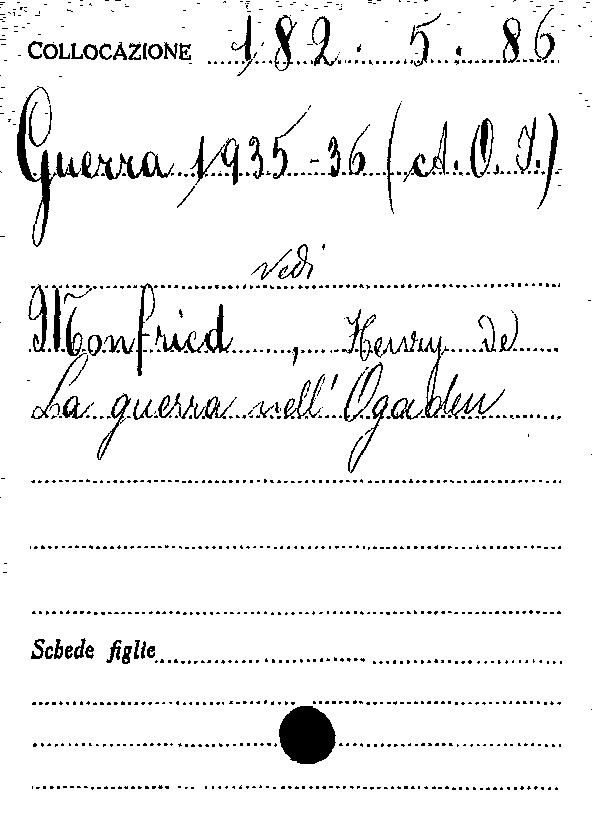 COLLOCAZIONE 182. 5. 86
Guerra 1935-36 (A.O.I.)
vedi
Monfried, Henry de
La guerra nell'Ogaden
Schede figlie